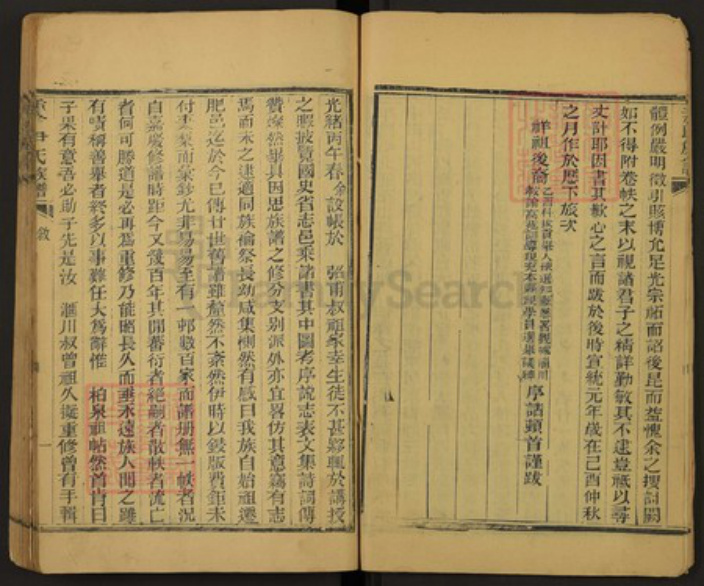 體例嚴明徵引賅博允足光宗祏而詒後昆而益愧余之搜討闕
如不得附卷帙之末以視諸君子之精詳勤敏其不逮豈祗以尋
丈計耶因書其歉心之言而跋於後時宣統元年歲在己酉仲秋
之月作於歷下旅次
祥祖後裔
序誥頓首謹跋
光緒丙午春余設帳於 張甫叔祖家幸生徒不甚夥輒於講授
之暇披覽國史省志邑乘諸書其中圖考序說志表文集詩詞傳
贊燦然畢具因思族譜之修分支別派外亦宜畧仿其意竊有志
焉而未之逮適同族禴祭長幼咸集惻然有感曰我族自始祖遷
肥邑迄於今已傳廿世舊譜雖釐然不紊然伊時以鋟版費鉅未
付棗梨而彙鈔尤非易易至有一邨數百家而譜册無一帙者況
自嘉慶修譜時距今又幾百年其間蕃衍者絕嗣者散軼者流亡
者何可勝道是必再為重修乃能昭長久而垂永遠族人聞之雖
有嘖稱善舉者終多以事難任大為辭惟 柏泉祖帖然首肯曰
子果有意吾必助子先是汝 滙川叔曾祖久擬重修曾有手輯
尹氏族譜
敘
一